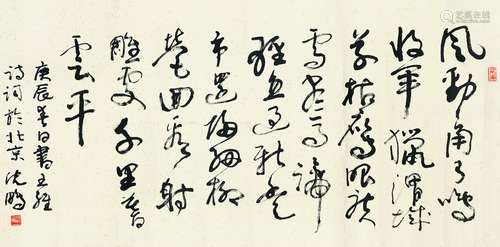 風勁角弓鳴
將軍獵渭城
草枯鷹眼疾
雪盡馬蹄
輕忽過新豐
市還歸細柳
營回看射
雕處千里暮
雲平
庚辰日書王維
詩詞於北京沈鵬